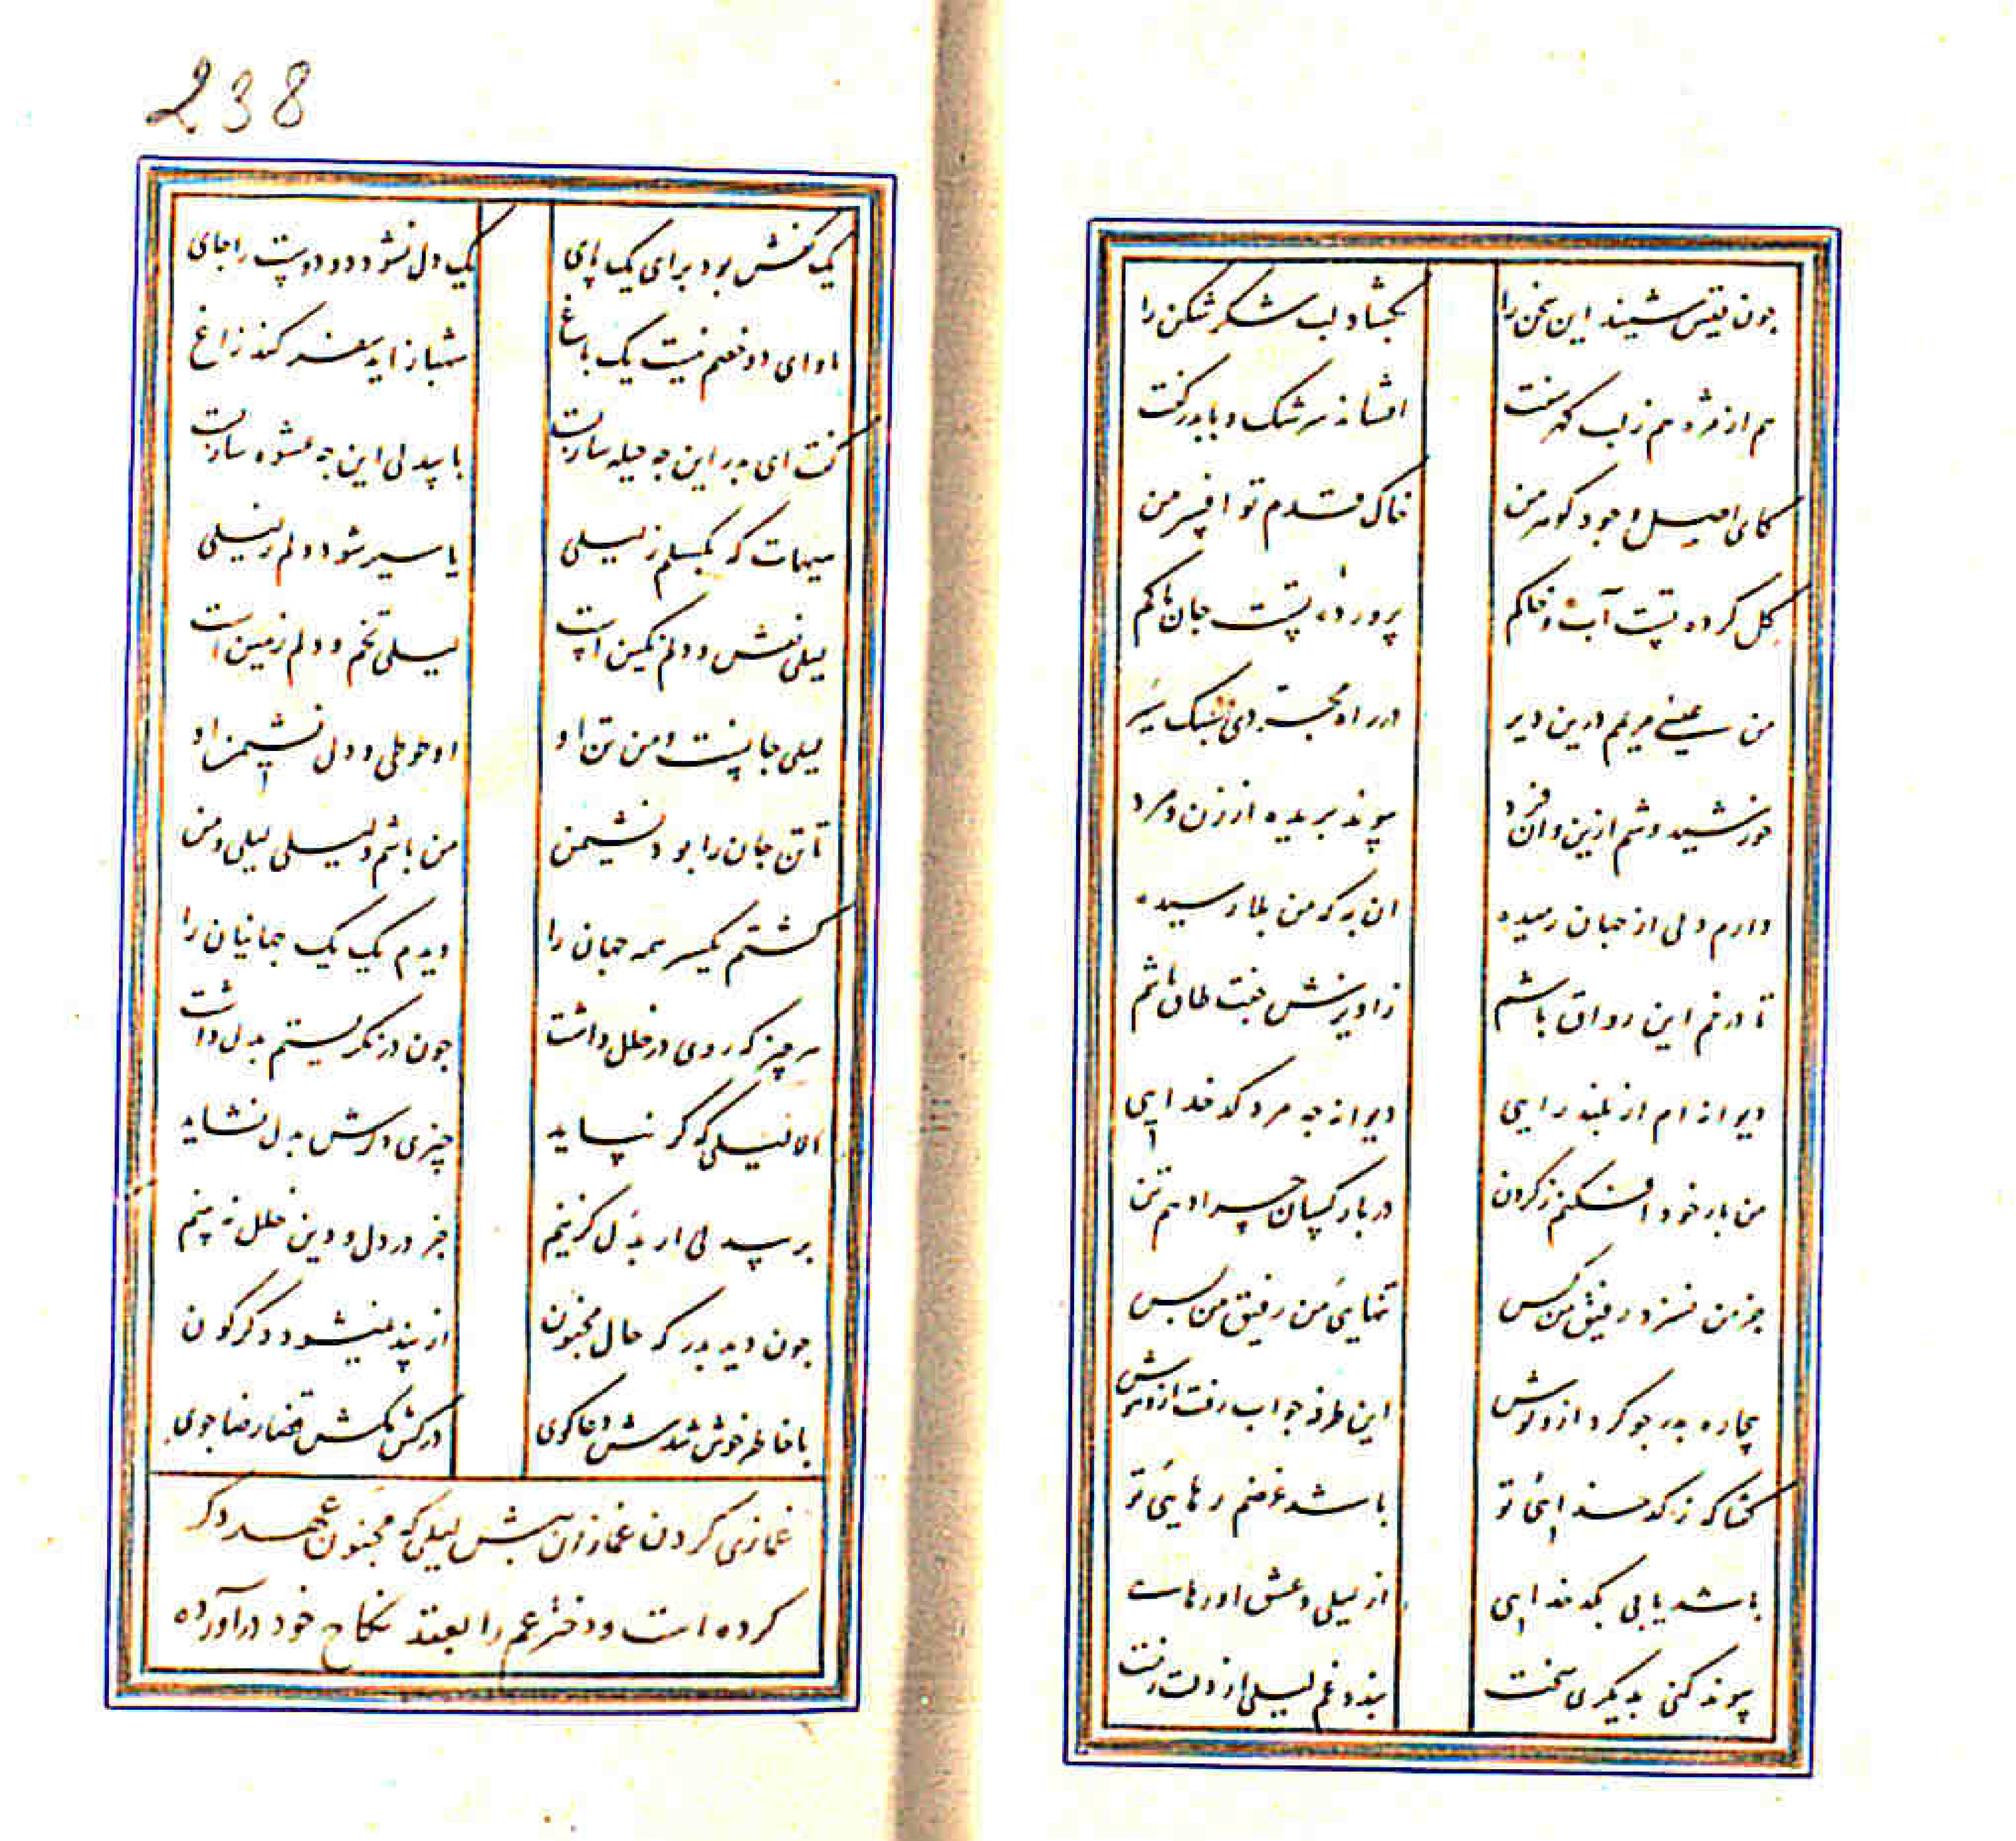 چون قیس شنید این سخن را بگشاد لب شکر شکن را
هم از مژه هم ز لب گهر سفت افشاند سرشک و با پدر گفت
کای اصل وجود گوهر من خاک قدم تو افسر من
گل کرده تست آب و خاکم پرورده تست جان پاکم
من عیسی مریم درین دیر در راه مجردی سبک سیر
خورشید وشم ازین و آن فرد پیوند بریده از زن و مرد
دارم دلی از جهان رمیده آن به که من بلا رسیده
تا در خم این رواق باشم ز آویزش جفت طاق باشم
دیوانه ام از بلند رایی دیوانه چه مرد کدخدایی
من بار خود افکنم ز گردن در بار کسان چرا دهم تن
جز من نسزد رفیق من کس تنهایی من رفیق من بس
بیچاره پدر چو کرد ازو گوش این طرفه جواب رفت از هوش
گفتا که ز کدخدایی تو باشد غرضم رهایی تو
باشد یابی بکدخدایی از لیلی و عشق او رهایی
پیوند کنی بدیگری سخت بندد غم لیلی از دلت رخت
238
یک کفش بود برای یک پای یک دل نشود دو دوست را جای
ماوای دو خصم نیست یک باغ شهباز آید سفر کند زاغ
گفت ای پدر این چه حیله سازیست با بیدلی این چه عشوه سازیست
هیهات که بگسلم ز لیلی یا سیر شود دلم ز لیلی
لیلی نقش و دلم نگین است لیلی تخم و دلم زمین است
لیلی جانست و من تن او او طوطی و دل نشیمن او
تا تن جان را بود نشیمن من باشم و لیلی لیلی و من
گشتم یکسر همه جهان را دیدم یک یک جهانیان را
هر چیز که روی در خلل داشت چون در نگریستم بدل داشت
الا لیلی که گر نیاید چیزی دگرش بدل نشاید
بر بیدلی ار بدل گزینم جز در دل و دین خلل نه بینم
چون دید پدر که حال مجنون از پند نمیشود دگرگون
با خاطر خوش شدش دعاگوی در کشمکش قضا رضا جوی
غمازی کردن غمازان پیش لیلی که مجنون عهد دگر
کرده است و دختر عم را بعقد نکاح خود درآورده